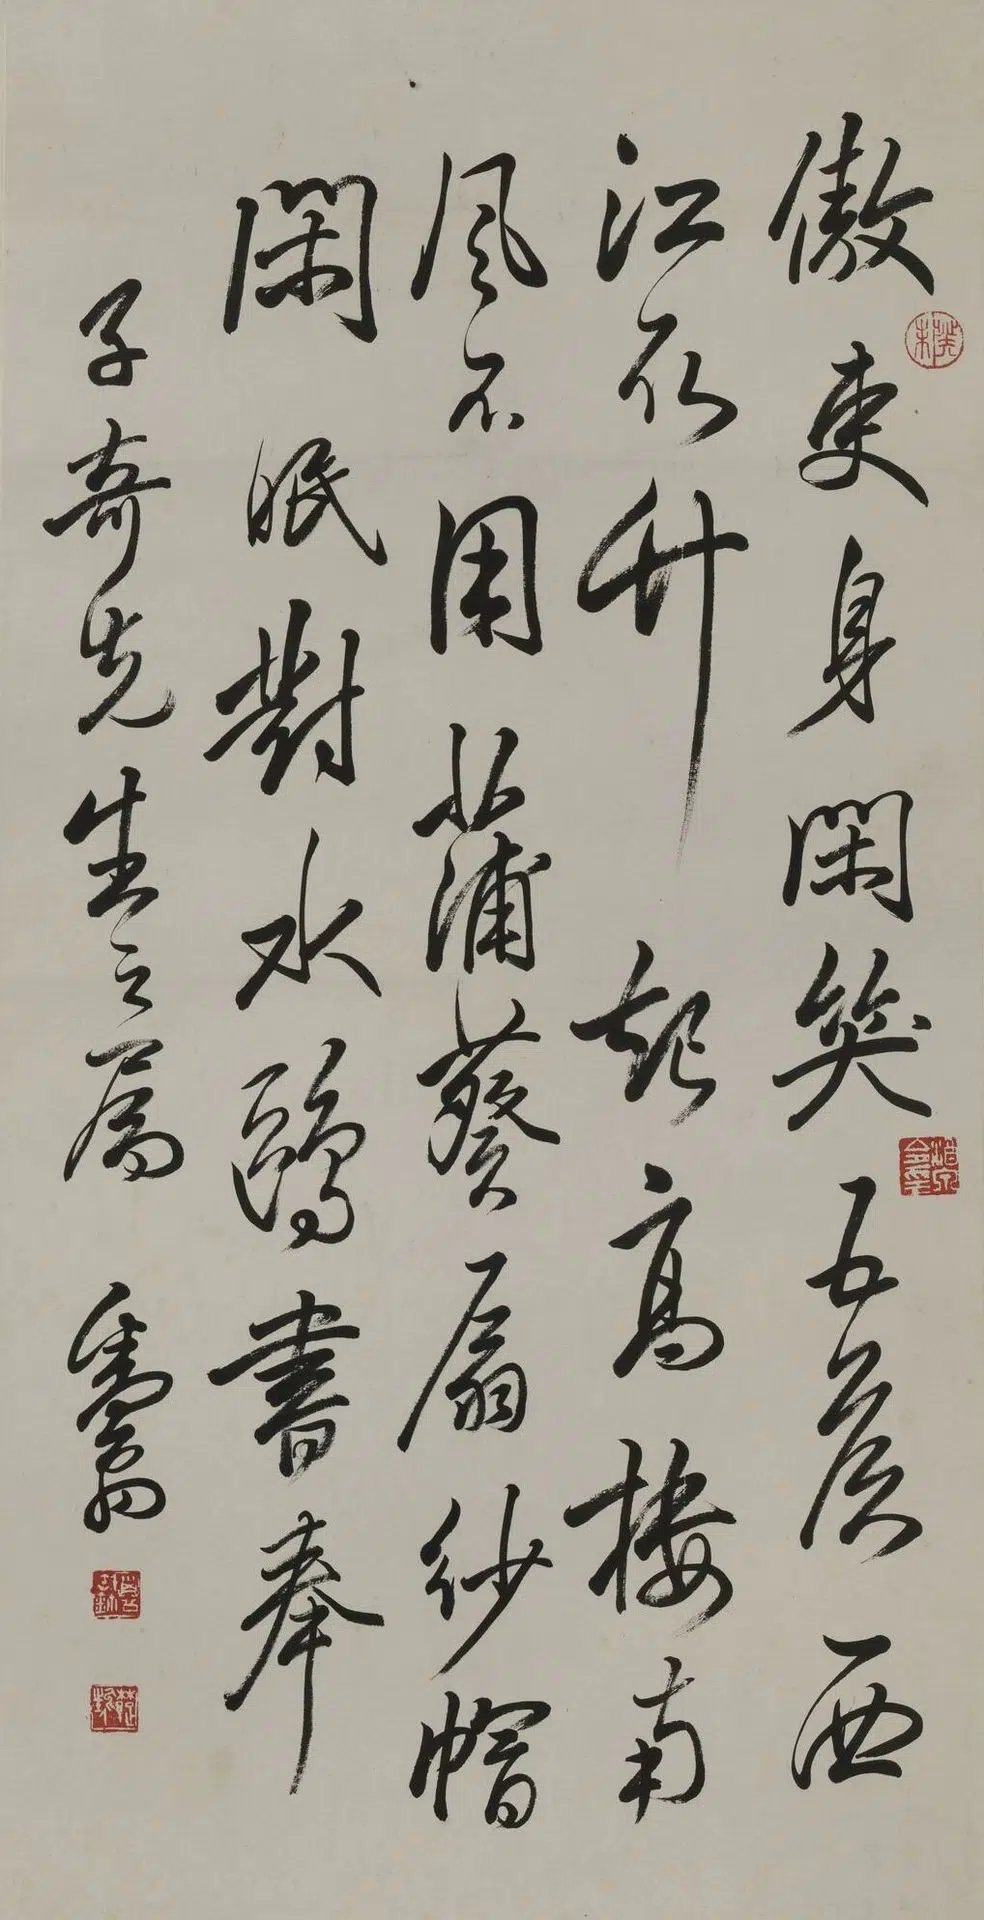 傲吏身閑笑五侯西
江取竹起高樓南
風不用蒲葵扇紗帽
閑眠對水鷗書奉
子奇先生之屬